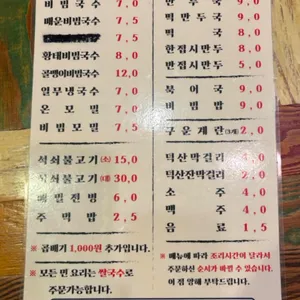 비빔국수 7,0
매운비빔국수 7,5
7,5
황태비빔국수 8,0
골뱅이비빔국수 12,0
열무냉국수 7,0
온모밀 7,0
비빔모밀 7,5
석쇠불고기(소) 15,0
석쇠불고기(대) 30,0
메밀전병 6,0
주먹밥 2,5
※ 곱배기 1,000원 추가입니다.
※ 모든 면 요리는 쌀국수로
주문가능합니다.
만두국 9,0
떡만두국 9,0
떡국 8,0
한접시만두 8,0
반접시만두 5,0
북어국 9,0
비빔밥 9,0
구운계란(3개) 2,0
덕산막걸리
덕산잔막걸리 2,0
소주 4,0
맥주 4,0
음료 1,5
※ 메뉴에 따라 조리시간이 달라서
주문하신 순서가 바뀔 수 있습니다.
이 점 양해 부탁드립니다.